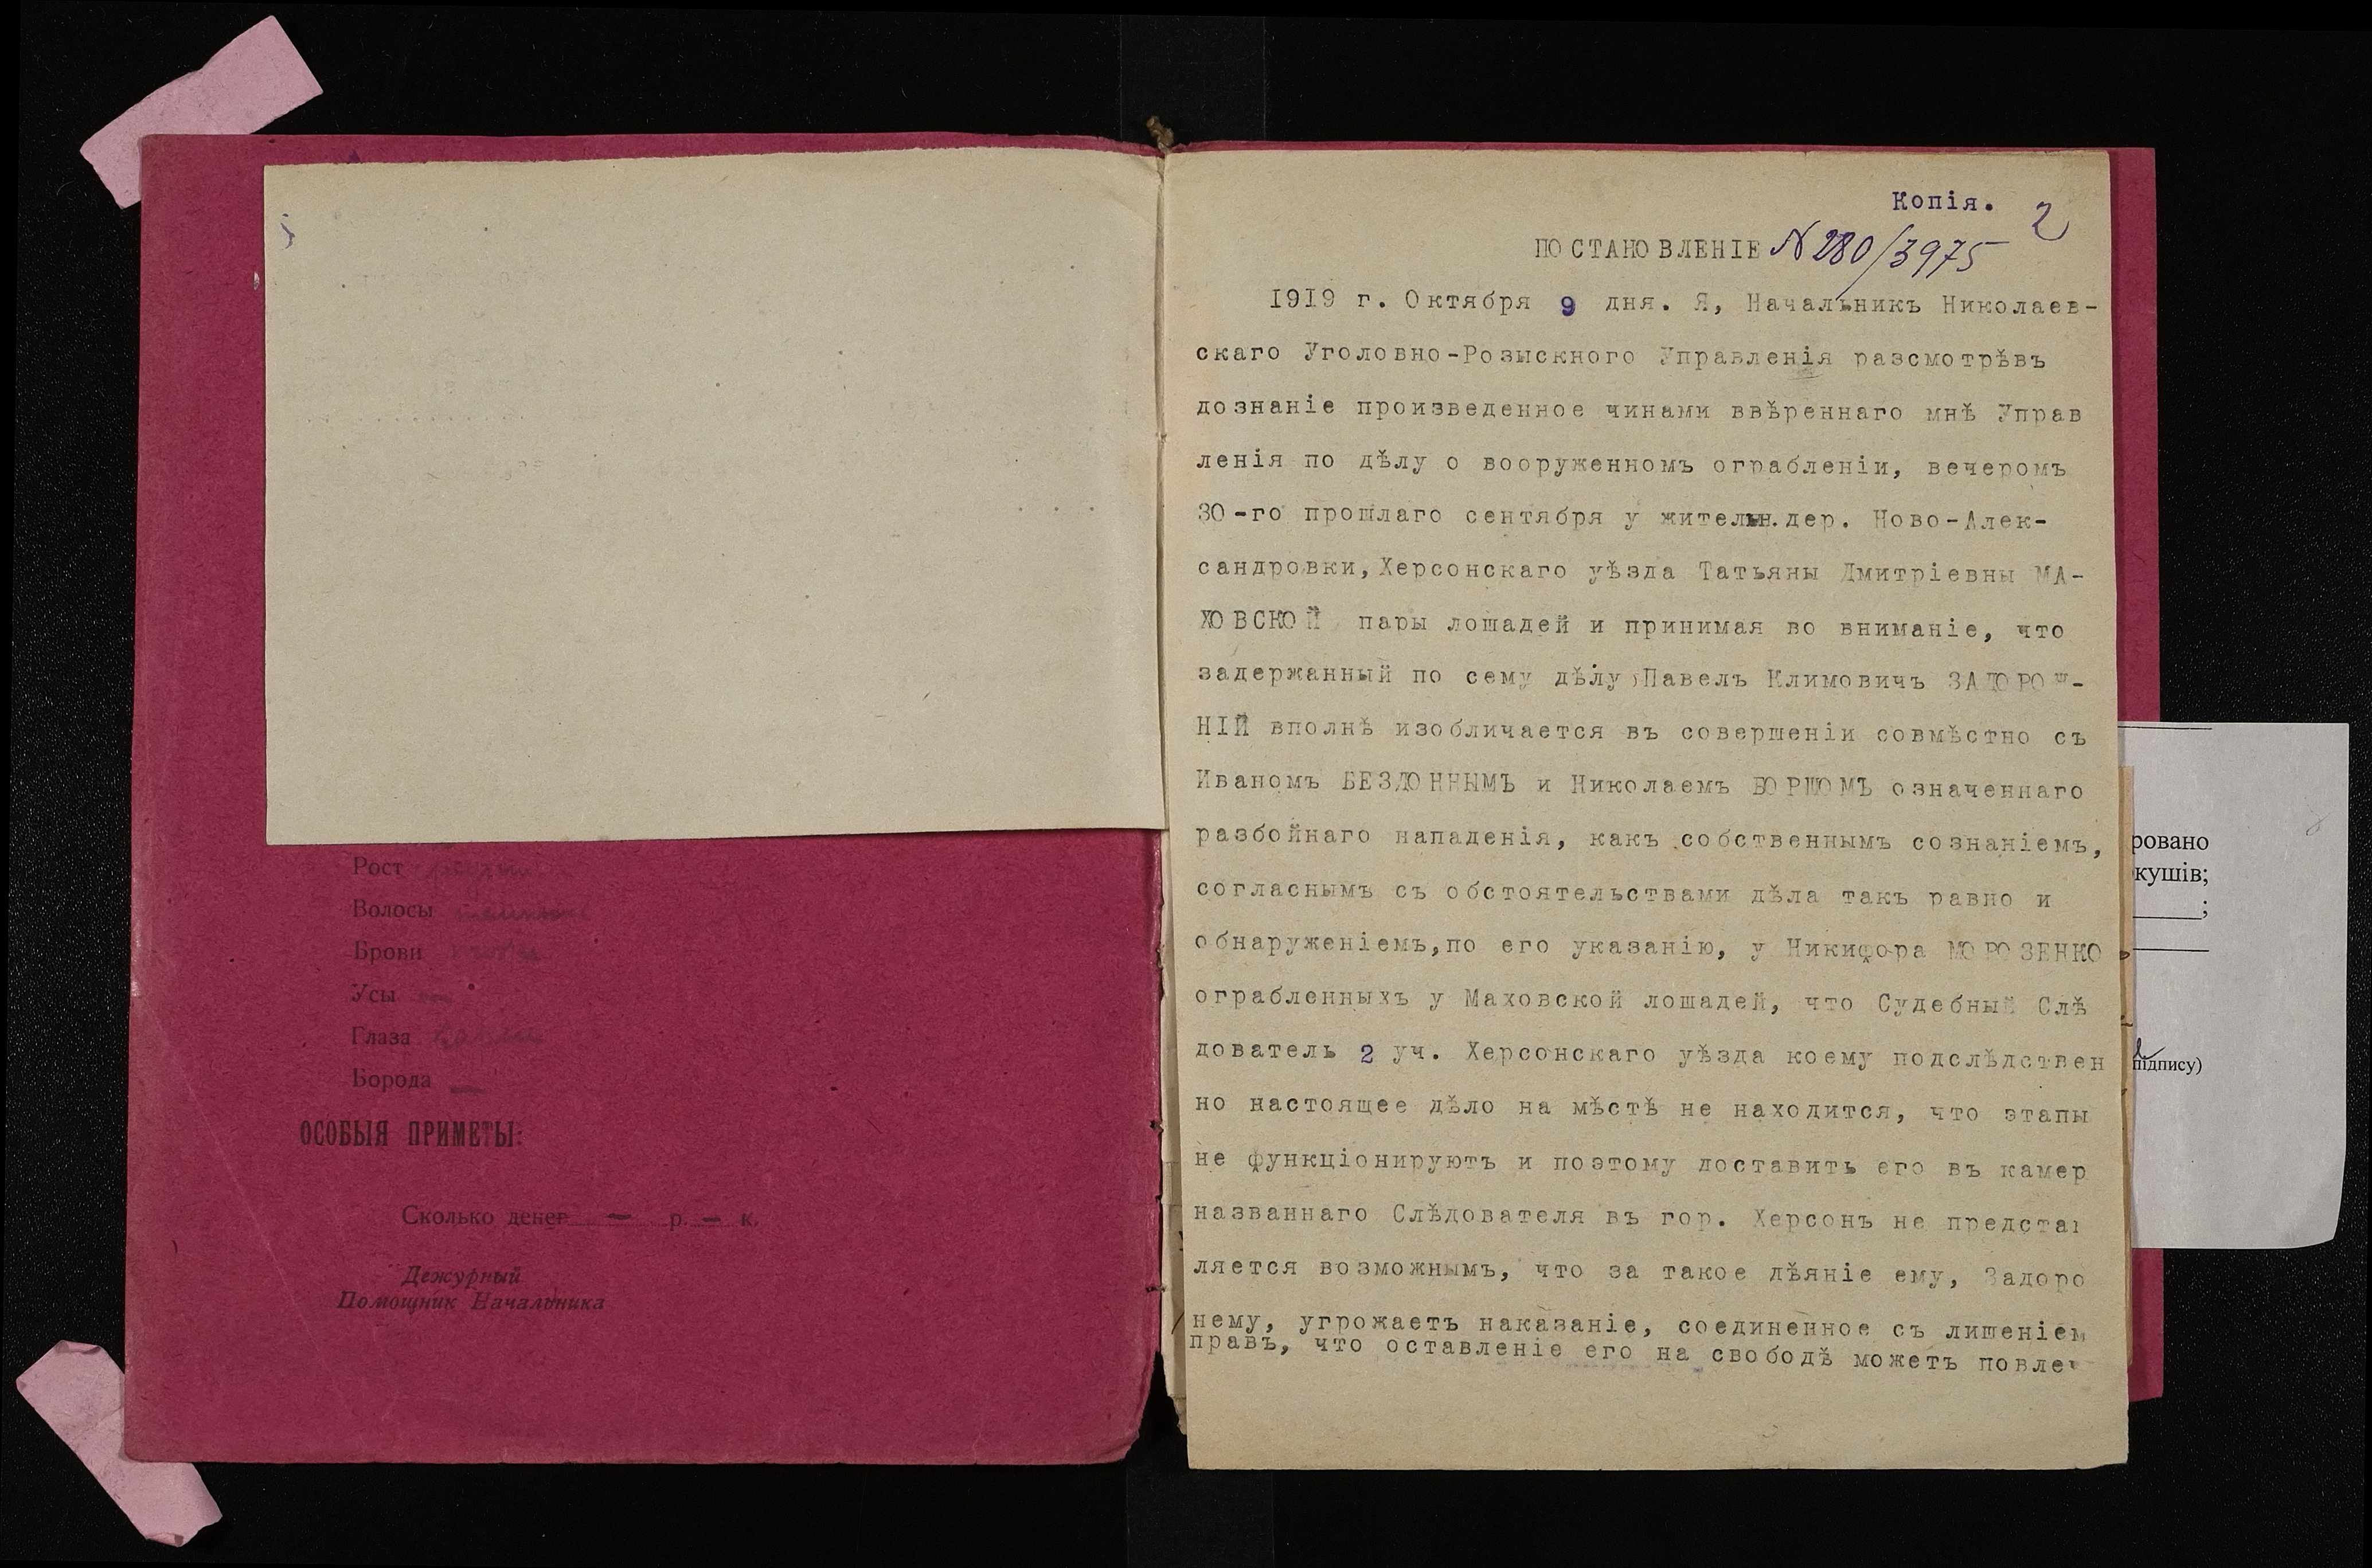 Рост
Волосы
Брови
Усы —
Глаза
Борода —
ОСОБЫЯ ПРИМЕТЫ:
Сколько денег — р. — к.
Дежурный
Помощник Начальника
Копія. 2
ПОСТАНОВЛЕНІЕ N 280/3975
1919 г. Октября 9 дня. Я, Начальникъ Николаев-
скаго Уголовно-Розыскного Управленія разсмотрѣвъ
дознаніе произведенное чинами ввѣреннаго мнѣ Управ
ленія по дѣлу о вооруженномъ ограбленіи, вечеромъ
30-го прошлаго сентября у жительн.дер. Ново-Алек-
сандровки, Херсонскаго уѣзда Татьяны Дмитріевны МА-
ХОВСКОЙ пары лошадей и принимая во вниманіе, что
задержанный по сему дѣлу Павелъ Климовичъ ЗАДОРОЖ-
НІЙ вполнѣ изобличается въ совершеніи совмѣстно съ
Иваномъ БЕЗДОННЫМЪ и Николаемъ БОРЩОМЪ означеннаго
разбойнаго нападенія, какъ собственнымъ сознаніемъ,
согласнымъ съ обстоятельствами дѣла такъ равно и
обнаруженіемъ,по его указанію, у Никифора МОРОЗЕНКО
ограбленныхъ у Маховской лошадей, что Судебный Слѣ
дователь 2 уч. Херсонскаго уѣзда коему подслѣдствен
но настоящее дѣло на мѣстѣ не находится, что этапы
не функціонируютъ и поэтому доставить его въ камер
названнаго Слѣдователя въ гор. Херсонъ не предста
ляется возможнымъ, что за такое дѣяніе ему, Задоро
нему, угрожаетъ наказаніе, соединенное съ лишеніем
правъ, что оставленіе его на свободѣ можетъ повле
ровано
кушів;
;
підпису)